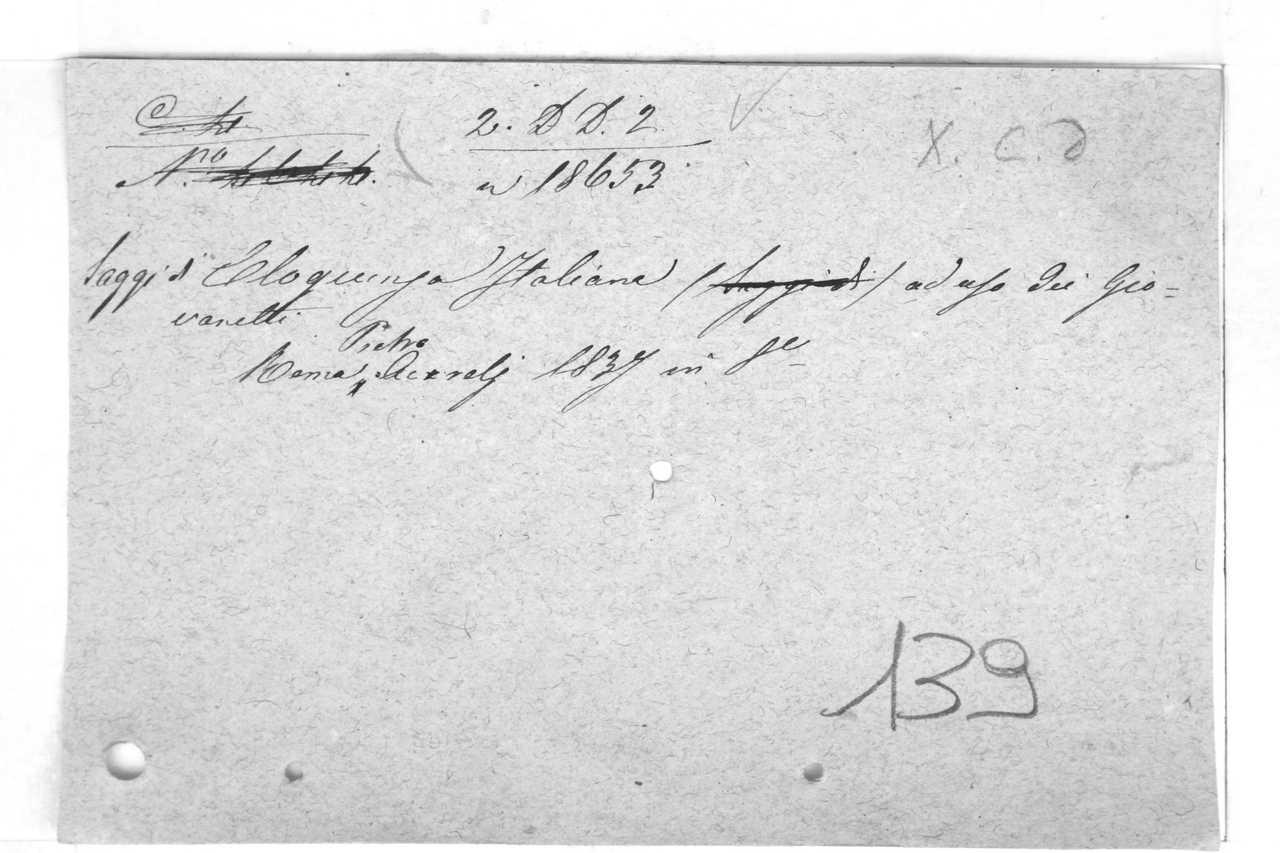 2. D D. 2
X. C. D
N.ro
n 18653
Saggi di Eloquenza Italiana (Saggi di) ad uso dei Gio=
vanetti
Pietro
Roma, Aurelj 1837 in 8º
139